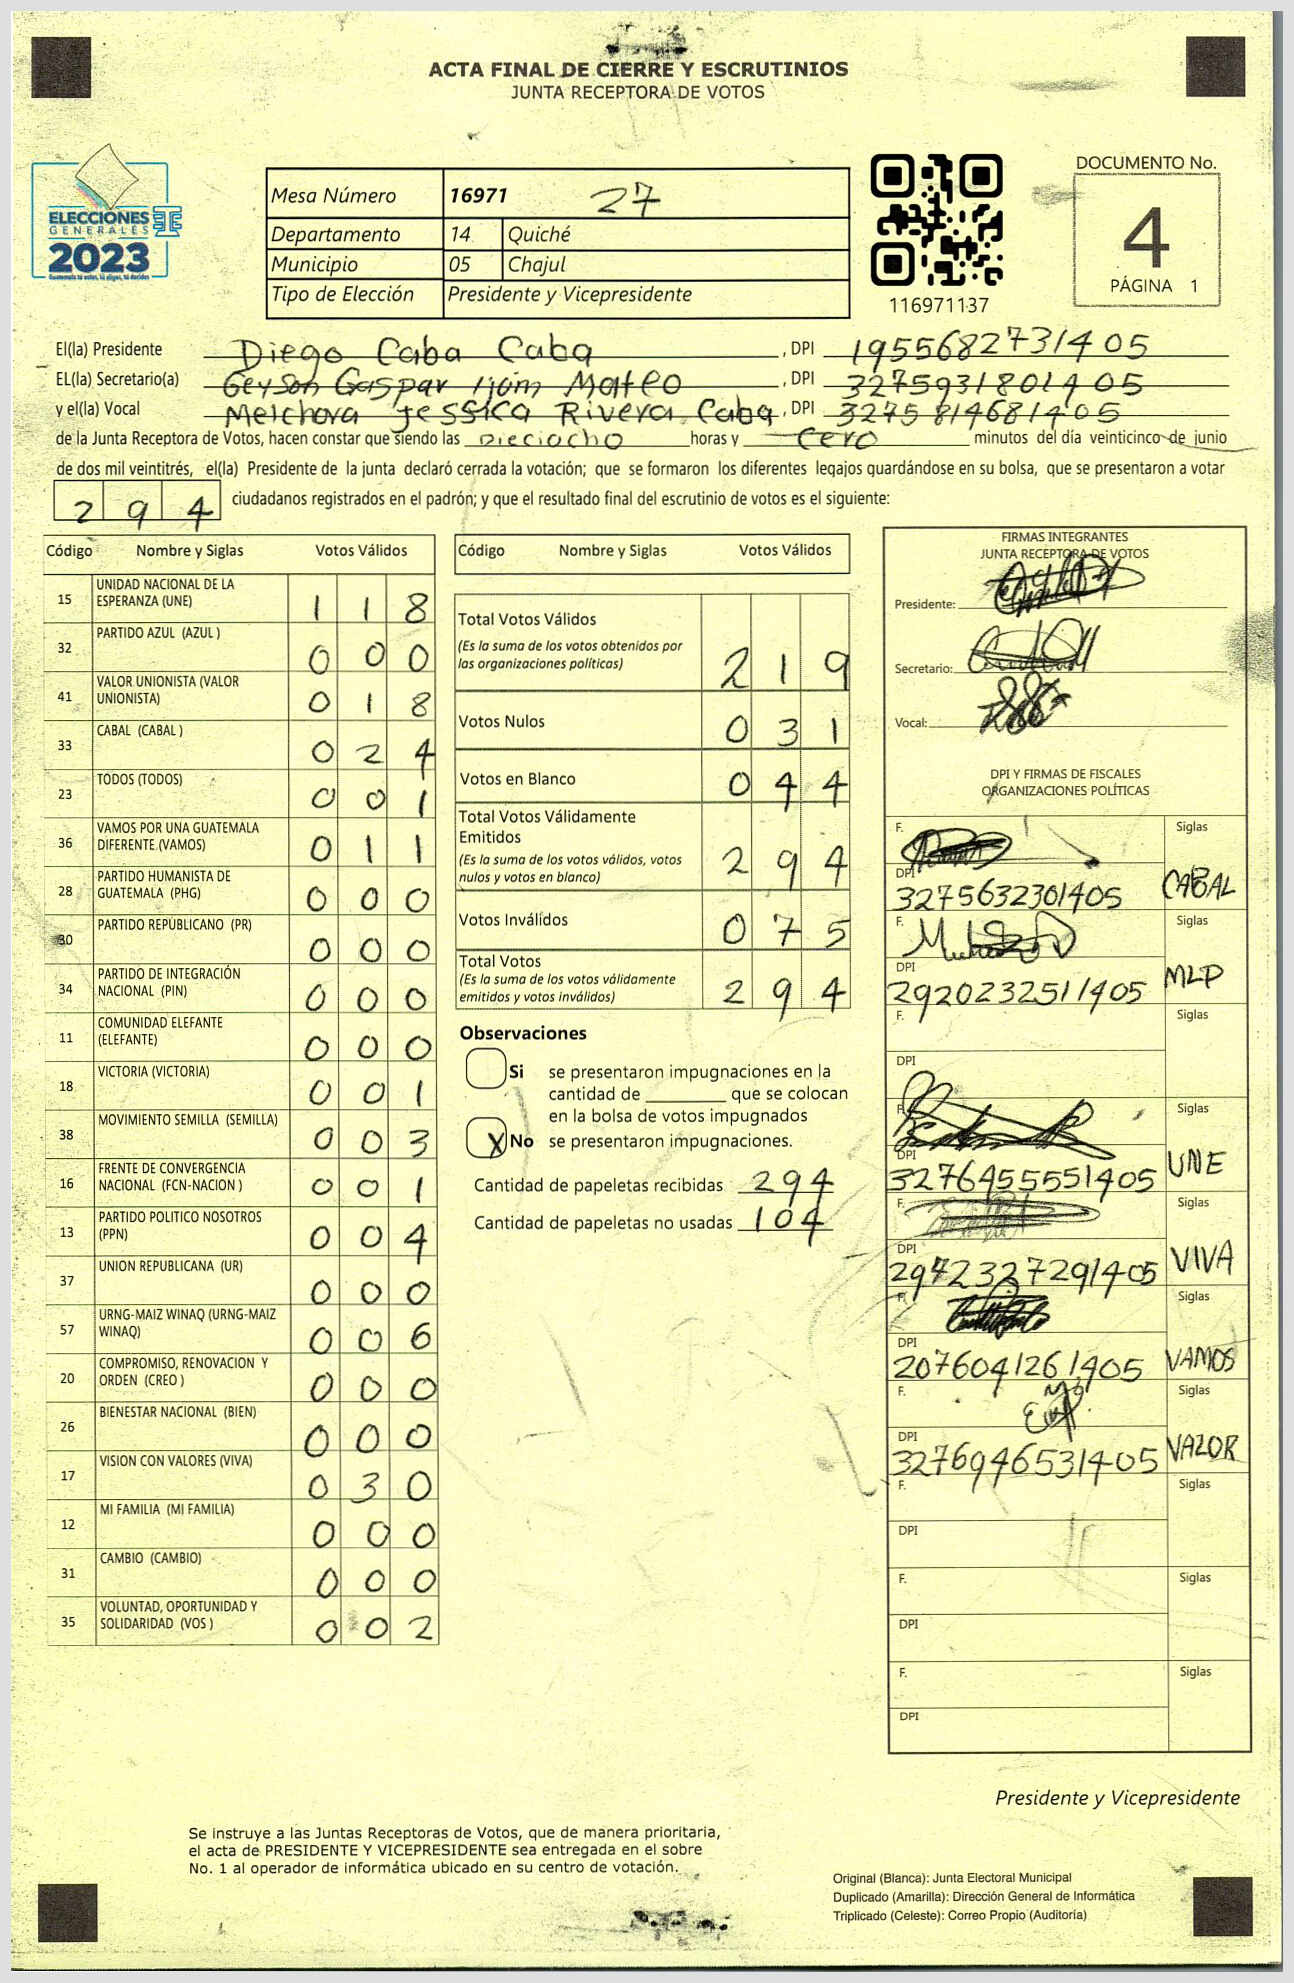 ACTA FINAL DE CIERRE Y ESCRUTINIOS
JUNTA RECEPTORA DE VOTOS
ELECCIONES
GENERALES
2023
Mesa Número 16971 27
Departamento 14 Quiché
Municipio 05 Chajul
Tipo de Elección Presidente y Vicepresidente
116971137
DOCUMENTO No.
4
PÁGINA 1
El(la) Presidente Diego Caba Caba , DPI 1955682731405
EL(la) Secretario(a) Geyson Gaspar Ijom Mateo , DPI 3275931801405
y el(la) Vocal Melchora Jessica Rivera Caba , DPI 3275814681405
de la Junta Receptora de Votos, hacen constar que siendo las Dieciocho horas y cero minutos del día veinticinco de junio
de dos mil veintitrés, el(la) Presidente de la junta declaró cerrada la votación; que se formaron los diferentes legajos guardándose en su bolsa, que se presentaron a votar
294 ciudadanos registrados en el padrón; y que el resultado final del escrutinio de votos es el siguiente:
Código Nombre y Siglas Votos Válidos
15 UNIDAD NACIONAL DE LA ESPERANZA (UNE) 1 1 8
32 PARTIDO AZUL (AZUL ) 0 0 0
41 VALOR UNIONISTA (VALOR UNIONISTA) 0 1 8
33 CABAL (CABAL ) 0 2 4
23 TODOS (TODOS) 0 0 1
36 VAMOS POR UNA GUATEMALA DIFERENTE (VAMOS) 0 1 1
28 PARTIDO HUMANISTA DE GUATEMALA (PHG) 0 0 0
30 PARTIDO REPUBLICANO (PR) 0 0 0
34 PARTIDO DE INTEGRACIÓN NACIONAL (PIN) 0 0 0
11 COMUNIDAD ELEFANTE (ELEFANTE) 0 0 0
18 VICTORIA (VICTORIA) 0 0 1
38 MOVIMIENTO SEMILLA (SEMILLA) 0 0 3
16 FRENTE DE CONVERGENCIA NACIONAL (FCN-NACION ) 0 0 1
13 PARTIDO POLITICO NOSOTROS (PPN) 0 0 4
37 UNION REPUBLICANA (UR) 0 0 0
57 URNG-MAIZ WINAQ (URNG-MAIZ WINAQ) 0 0 6
20 COMPROMISO, RENOVACION Y ORDEN (CREO ) 0 0 0
26 BIENESTAR NACIONAL (BIEN) 0 0 0
17 VISION CON VALORES (VIVA) 0 3 0
12 MI FAMILIA (MI FAMILIA) 0 0 0
31 CAMBIO (CAMBIO) 0 0 0
35 VOLUNTAD, OPORTUNIDAD Y SOLIDARIDAD (VOS ) 0 0 2
Código Nombre y Siglas Votos Válidos
Total Votos Válidos
(Es la suma de los votos obtenidos por
las organizaciones políticas) 2 1 9
Votos Nulos 0 3 1
Votos en Blanco 0 4 4
Total Votos Válidamente
Emitidos
(Es la suma de los votos válidos, votos
nulos y votos en blanco) 2 9 4
Votos Inválidos 0 7 5
Total Votos
(Es la suma de los votos válidamente
emitidos y votos inválidos) 2 9 4
Observaciones
Si se presentaron impugnaciones en la
cantidad de ________ que se colocan
en la bolsa de votos impugnados
X No se presentaron impugnaciones.
Cantidad de papeletas recibidas 294
Cantidad de papeletas no usadas 104
FIRMAS INTEGRANTES
JUNTA RECEPTORA DE VOTOS
Presidente:
Secretario:
Vocal:
DPI Y FIRMAS DE FISCALES
ORGANIZACIONES POLÍTICAS
F. Siglas
DPI 3275632301405 CABAL
F. Siglas
DPI 2920232511405 MLP
F. Siglas
DPI
F. Siglas
DPI 3276455551405 UNE
F. Siglas
DPI 2972327291405 VIVA
F. Siglas
DPI 2076041261405 VAMOS
F. Siglas
DPI 3276946531405 VALOR
F. Siglas
DPI
F. Siglas
DPI
F. Siglas
DPI
Presidente y Vicepresidente
Se instruye a las Juntas Receptoras de Votos, que de manera prioritaria,
el acta de PRESIDENTE Y VICEPRESIDENTE sea entregada en el sobre
No. 1 al operador de informática ubicado en su centro de votación.
Original (Blanca): Junta Electoral Municipal
Duplicado (Amarilla): Dirección General de Informática
Triplicado (Celeste): Correo Propio (Auditoría)